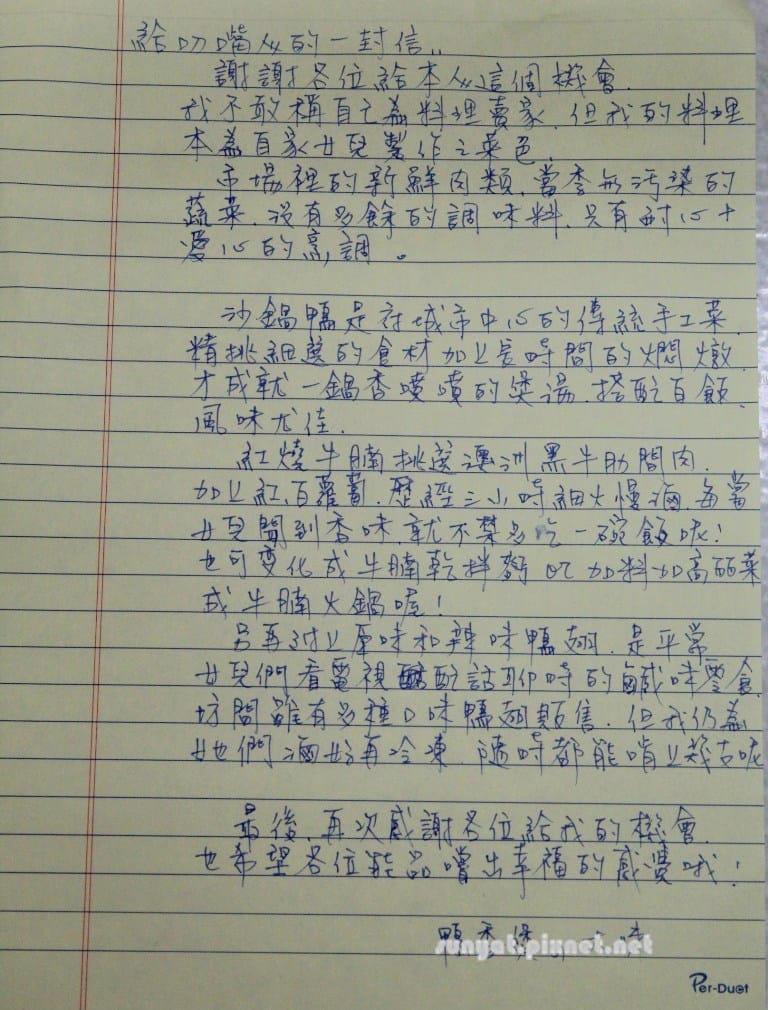 給叨嘴人的一封信..
謝謝各位給本人這個機會.
我不敢稱自己為料理賣家.但我的料理
本為自家女兒製作之菜色.
市場裡的新鮮肉類.當季無污染的
蔬菜.沒有多餘的調味料.只有耐心+
愛心的烹調。
沙鍋鴨是府城市中心的傳統手工菜.
精挑細選的食材加上長時間的燜燉.
才成就一鍋香噴噴的煲湯.搭配白飯.
風味尤佳.
紅燒牛腩挑選澳洲黑牛肋間肉.
加上紅.白蘿蔔.歷經三小時細火慢滷.每當
女兒聞到香味.就不禁多吃一碗飯呢!
也可变化成牛腩乾拌麵 or 加料加高丽菜
成牛腩火鍋喔!
另再附上原味和辣味鴨翅.是平常
女兒們看電視配話聊時的鹹味零食.
坊間雖有多種口味鴨翅販售.但我仍為
她們滷好再冷凍.隨時都能啃上幾古呢
最後.再次感謝各位給我的機會.
也希望各位能品嚐出幸福的感覺哦!
鴨香煲
sunyat.pixnet.net
Per-Duet